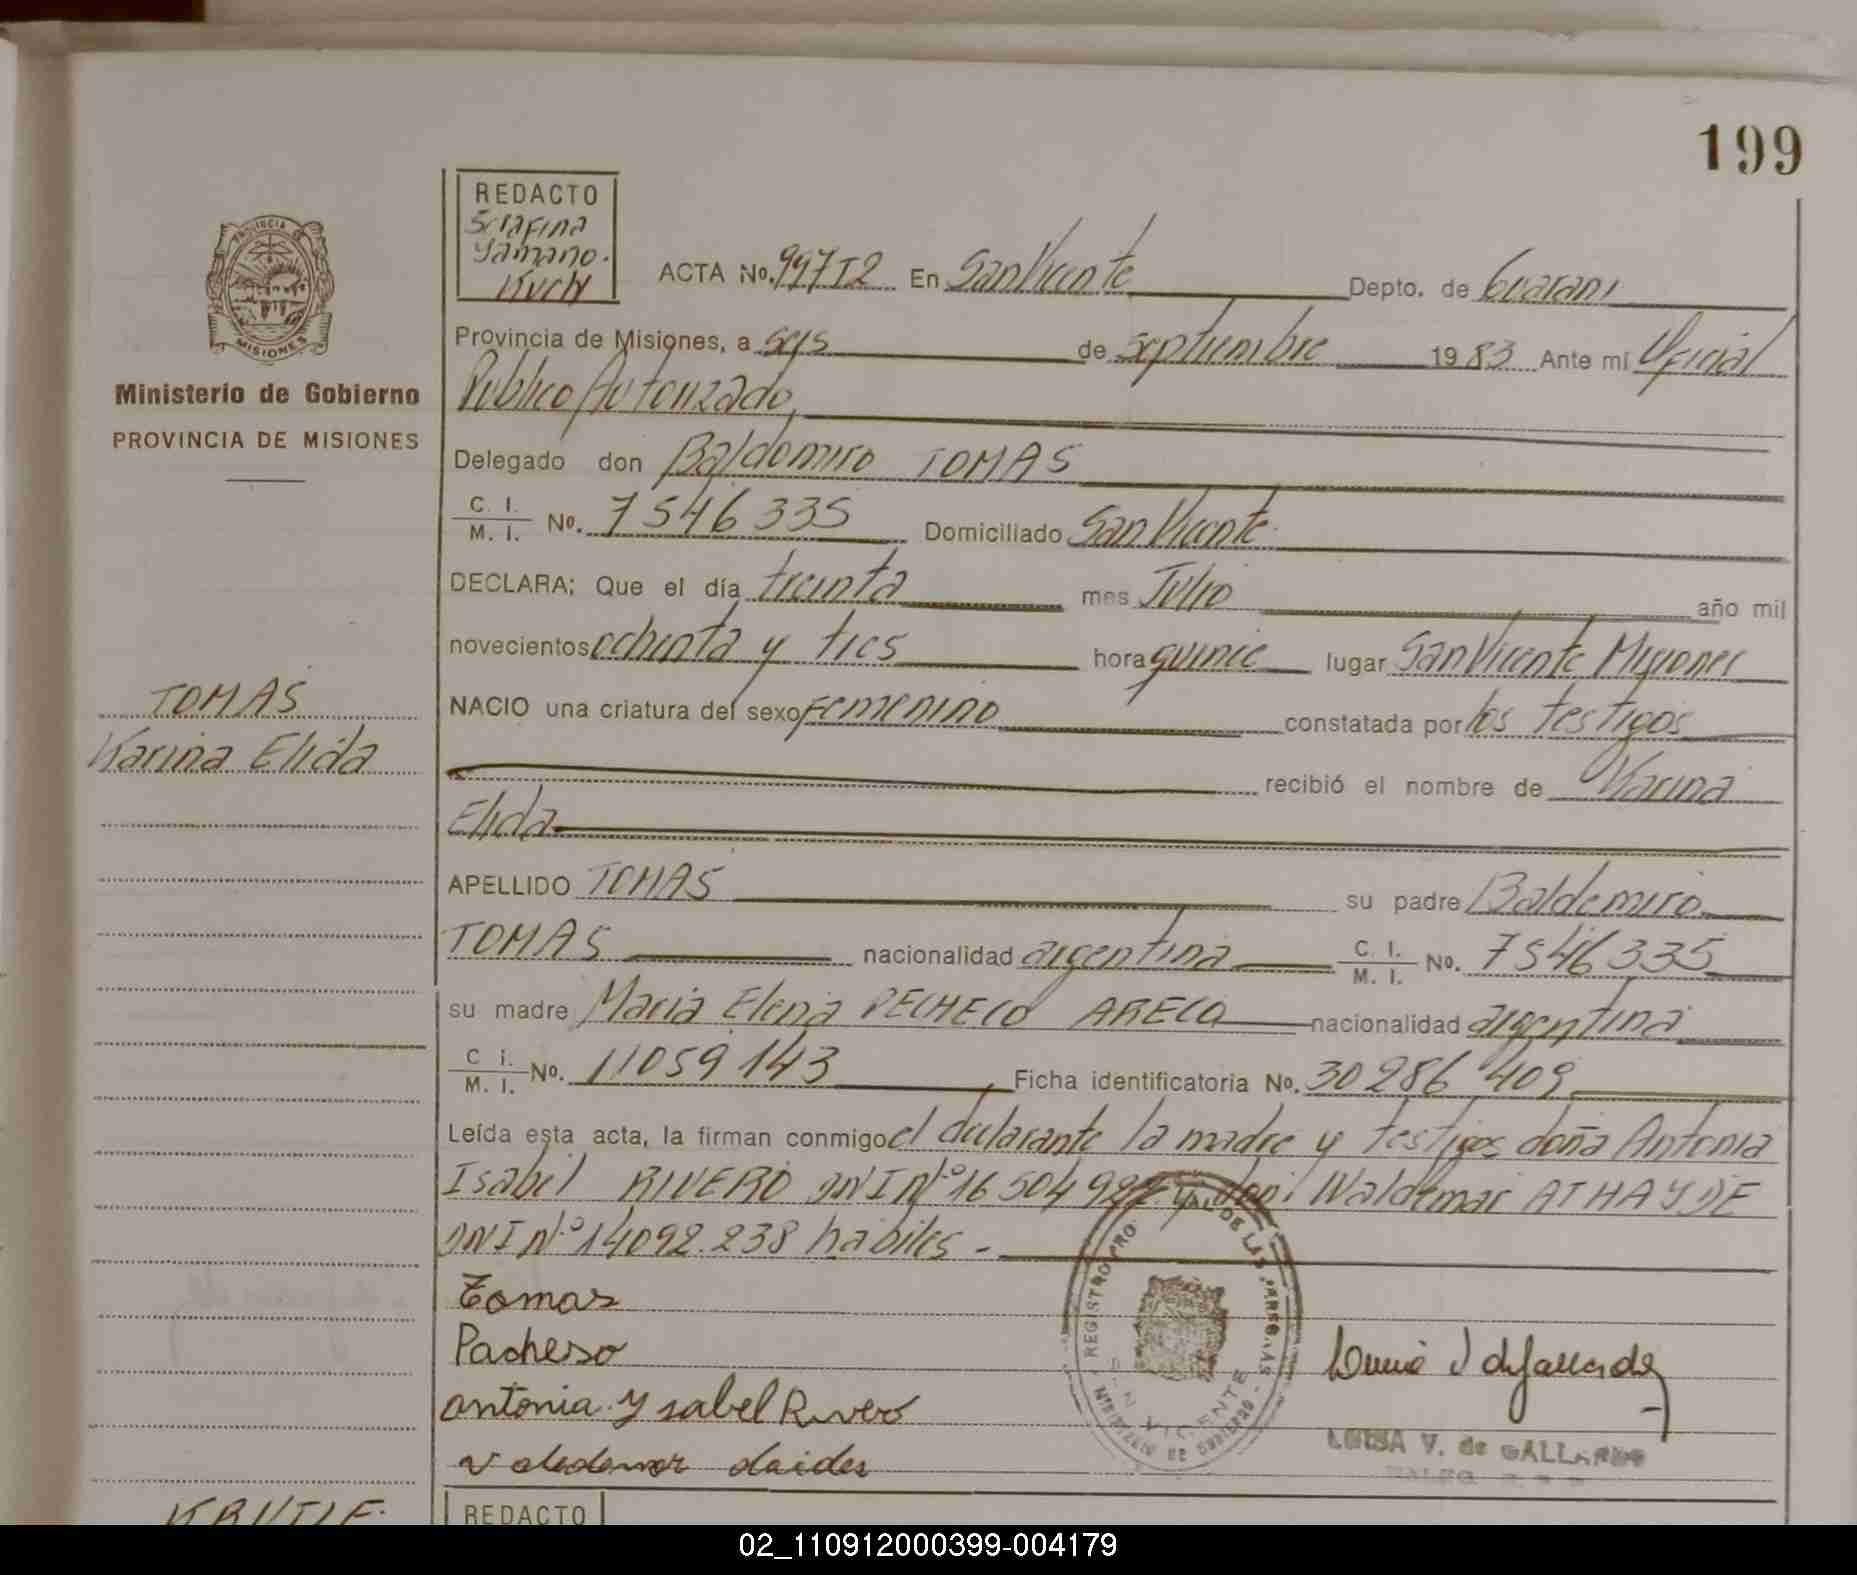 199
REDACTO
Serafina
Yamano.
Kuch
PROVINCIA DE
MISIONES
Ministerio de Gobierno
PROVINCIA DE MISIONES
ACTA No. 997T2 En San Vicente Depto. de Guarani
Provincia de Misiones, a seis de septiembre 1983 Ante mi Oficial
Publico Autorizado,
Delegado don Baldomiro TOMAS
C. I. / M. I. No. 7546335 Domiciliado San Vicente
DECLARA; Que el día treinta mes Julio año mil
novecientos ochenta y tres hora quince lugar San Vicente Misiones
TOMAS
Karina Elida
NACIO una criatura del sexo Femenino constatada por los testigos
recibió el nombre de Karina
Elida
APELLIDO TOMAS su padre Baldemiro
TOMAS nacionalidad argentina C. I. / M. I. No. 7546335
su madre Maria Elena PECHECO ARECO nacionalidad argentina
C. I. / M. I. No. 11059143 Ficha identificatoria No. 30286409
Leída esta acta, la firman conmigo el declarante la madre y testigos doña Antonia
Isabel RIVERO DNI Nº 16504927 y don Waldemar ATHAYDE
DNI Nº 14092.238 habiles -
Tomas
Pacheso
antonia Ysabel Rivero
REGISTRO PRO AL DE LAS PERSONAS
SAN VICENTE
MINISTERIO DE GOBIERNO
LUISA V. de GALLARDO
REDACTO
02_110912000399-004179